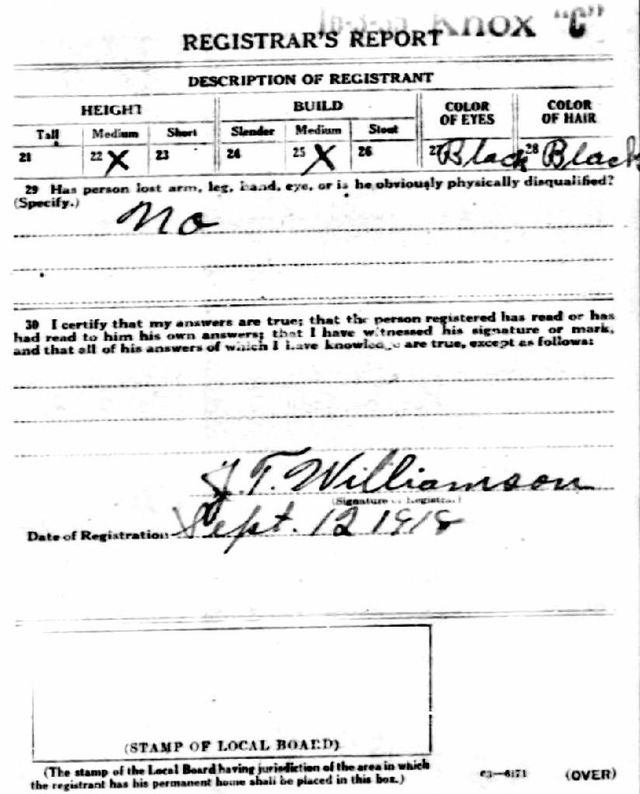 Knox "C"
REGISTRAR'S REPORT
DESCRIPTION OF REGISTRANT
HEIGHT BUILD COLOR OF EYES COLOR OF HAIR
Tall Medium Short Slender Medium Stout
21 22 X 23 24 25 X 26 27 Black 28 Black
29 Has person lost arm, leg, hand, eye, or is he obviously physically disqualified?
(Specify.)
No
30 I certify that my answers are true; that the person registered has read or has
had read to him his own answers; that I have witnessed his signature or mark,
and that all of his answers of which I have knowledge are true, except as follows:
J. T. Williamson
(Signature of Registrar)
Date of Registration Sept. 12 1918
(STAMP OF LOCAL BOARD)
(The stamp of the Local Board having jurisdiction of the area in which
the registrant has his permanent home shall be placed in this box.)
03—6171 (OVER)